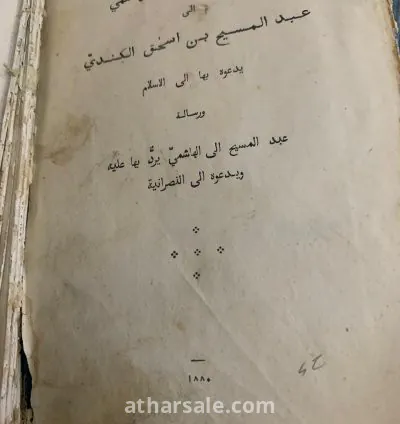 الى
عبد المسيح بن اسحق الكندي
يدعوه بها الى الاسلام
ورسالة
عبد المسيح الى الهاشمي يردُّ بها عليه
ويدعوه الى النصرانية
١٨٨٠
atharsale.com